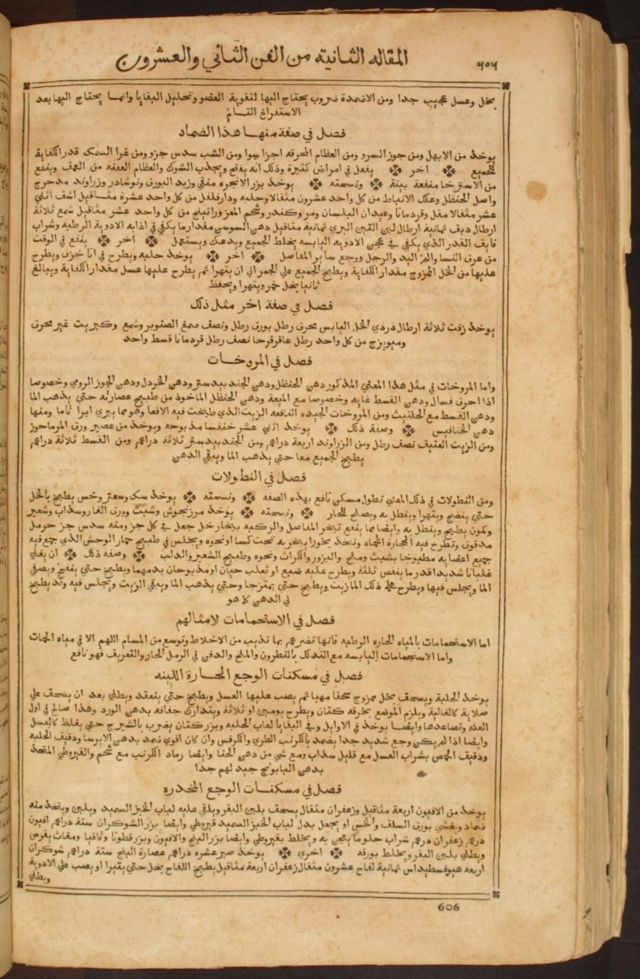 المقاله الثانية من الفن الثاني والعشرون ٦٠٦
بخل وعسل عجيب جدا ومن الاضمدة ضروب يحتاج اليها لتقوية العضو وتحليل البقايا وانما يحتاج اليها بعد
الاستفراغ التام
فصل في صفة منها هذا الضماد
يوخذ من الابهل ومن جوز السرو ومن العظام المحرقه اجزا سوا ومن الشب سدس جزو ومن غرا السمك قدر الكفاية
للجميع اخر ينفع في امراض كثيرة وذلك انه يفتح ويجذب الشوك والعظام العفنه من العمق وينفع
من الاسترخا منفعة بينة ونسخته يوخذ بزر الانجره منقي وزبد البورق ونوشادر وزراوند مدحرج
واصل الحنظل وعلك الانباط من كل واحد عشرون مثقالا وحلبه ودارفلفل من كل واحد عشرة مثاقيل اشف اثني
عشر مثقالا مقل وقردمانا وعيدان البلسان ومر وكندر وشحم المعز وراتينج من كل واحد عشر مثاقيل شمع ثلاثة
ارطال ديف ثمانية ارطال لبن التين البري ثمانية مثاقيل دهن السوسن مقدار ما يكفي في اذابه الادوية الرطبه وشراب
فايق القدر الذي يكفي في عجن الادويه اليابسه يخلط الجميع ويدعك ويستعمل اخر ينفع في الوقت
من عرق النسا والم اليد والرجل ووجع ساير المفاصل اخر يوخذ حلبه ويطرح في انا خزف ويطرح
عليها من الخل الممزوج مقدار الكفاية ويطبخ الجميع علي الجمر الي ان يتهرا ثم يطرح عليها عسل مقدار الكفاية ويبالغ
ثانيا بخل خمر ويتهرا ويحفظ
فصل في صفة اخر مثل ذلك
يوخذ زفت ثلاثة ارطال دردي الخل اليابس محرق رطل بورق رطل ونصف صمغ الصنوبر وشمع وكبريت غير محرق
وميويزج من كل واحد رطل عاقرقرحا نصف رطل قردمانا قسط واحد
فصل في المروخات
واما المروخات في مثل هذا المعني المذكور دهن الحنظل ودهن الجند بيدستر ودهن الخردل ودهن الجوز الرومي وخصوصا
اذا احرق فسال ودهن القسط غايه وخصوصا مع الميعة ودهن الحنظل الماخوذ من طبيخ عصارته حتي يذهب الما
ودهن القسط مع الحلتيت ومن المروخات الجيده النافعه الزيت الذي طبخت فيه الافعا وهو مما يبري ابرا تاما ومنها
دهن الخنافس وصفة ذلك يوخذ اثني عشر خنفسا مذبوحه ويوخذ من عصير ورق المرماحوز
ومن الزيت العتيق نصف رطل ومن الزراوند اربعة دراهم ومن الجندبيدستر ثلاثة دراهم ومن القسط ثلاثة دراهم
يطبخ الجميع معا حتي يذهب الما ويبقي الدهن
فصل في النطولات
ومن النطولات في ذلك المعني نطول مسكن نافع بهذه الصفه ونسخته يوخذ سك وسعتر وخس يطبخ بالخل
حتي ينضج ويتهرا وينطل به ويصلح للحار ونسخته يوخذ مرزنجوش وشبت وورق الغار وسداب وشعير
وكمون يطبخ وينطل به وايضا مما ينفع تبخير المفاصل والركبه ببخار خل جعل في كل جز ومنه سدس جز حرمل
مدقوق وتطرح فيه الحجارة المحماه وتتخذ بخورا يتبخر به تحت كسا ونحوه ويجلس في طبيخ حمار الوحش الذي جمع فيه
جميع اعضايه مطبوخا بشبت وملح والبزور والكراث ونحوه وطبيخ الشعير والدلب وصفه ذلك ان يغلي
غليانا شديدا قدر ما ينقص ثلثه ويطرح عليه ضبع او ثعلب حيان او مذبوحان بدمهما ويطبخ حتي ينضج ويصفي
الما ويجلس فيها ويطرح علي ذلك الما زيت ويطبخ حتي يمتزجا وحتي يذهب الما ويبقي الزيت ويجلس فيه وقد يطبخ
في الدهن كما هو
فصل في الاستحمامات لامثالهم
اما الاستحمامات بالمياه الحاره الرطبه فانها تضرهم بما تذيب من الاخلاط وتوسع من المسام اللهم الا في مياه الحمات
واما الاستحمامات اليابسه مع التدلك بالنطرون والملح والدفن في الرمل الحار والتعريف فهو نافع
فصل في مسكنات الوجع الحارة اللينه
يوخذ الحلبة ويسحف بخل ممزوج سحقا مهيا ثم يصب عليها العسل ويطبخ حتي ينعقد ويطلي بعد ان يسحف علي
صلاية كالغالية ويلزم الموضع بخرقه كتان ويطرح يومين او ثلاثة ويتدارك جفافه بدهن الورد وهذا صالح في اول
العله وتصاعدها وايضا يوخذ في الاوايل وفي البقايا لعاب الحلبه وبزر كتان يضرب بالشيرج حتي يغلظ كالعسل
وايضا اذا لم يكن وجع شديد جدا يضمد بالكرنب الطري والكرفس وان كان اقوي ضمد بدهن الايرسا ودقيف الحلبه
ودقيف الحمص بشراب العسل مع قليل سداب ومع شي من دهن الحنا وايضا رماد الكرنب مع شحم والقيروطي المتخذ
بدهن البابونج جيد لهم جدا
فصل في مسكنات الوجع المخدره
يوخذ من الافيون اربعة مثاقيل وزعفران مثقال يسحف بلبن البقر ويلقي عليه لباب الخبز السميد ويلين ويتخذ منه
ضماد ويغشي بورق السلف والخس او يجعل بدل لباب الخبز السميد قيروطي وايضا بزر الشوكران ستة دراهم افيون
درهم زعفران درهم شراب حلو ما يعجن به ويخلط بقيروطي وايضا بزر البنج والافيون وبزر قطونا وقاقيا ومغاث يقرص
ويطلي بلبن البقر ويخلط بورقه اخري يوخذ صبر عشره دراهم عصارة البنج ستة دراهم شوكران
اربعه هيوفسطيداس ثمانية لفاح عشرون مثقال زعفران اربعة مثاقيل يطبخ اللفاح بخل حتي يتهرا او يصب علي الادوية
ويطلي
606